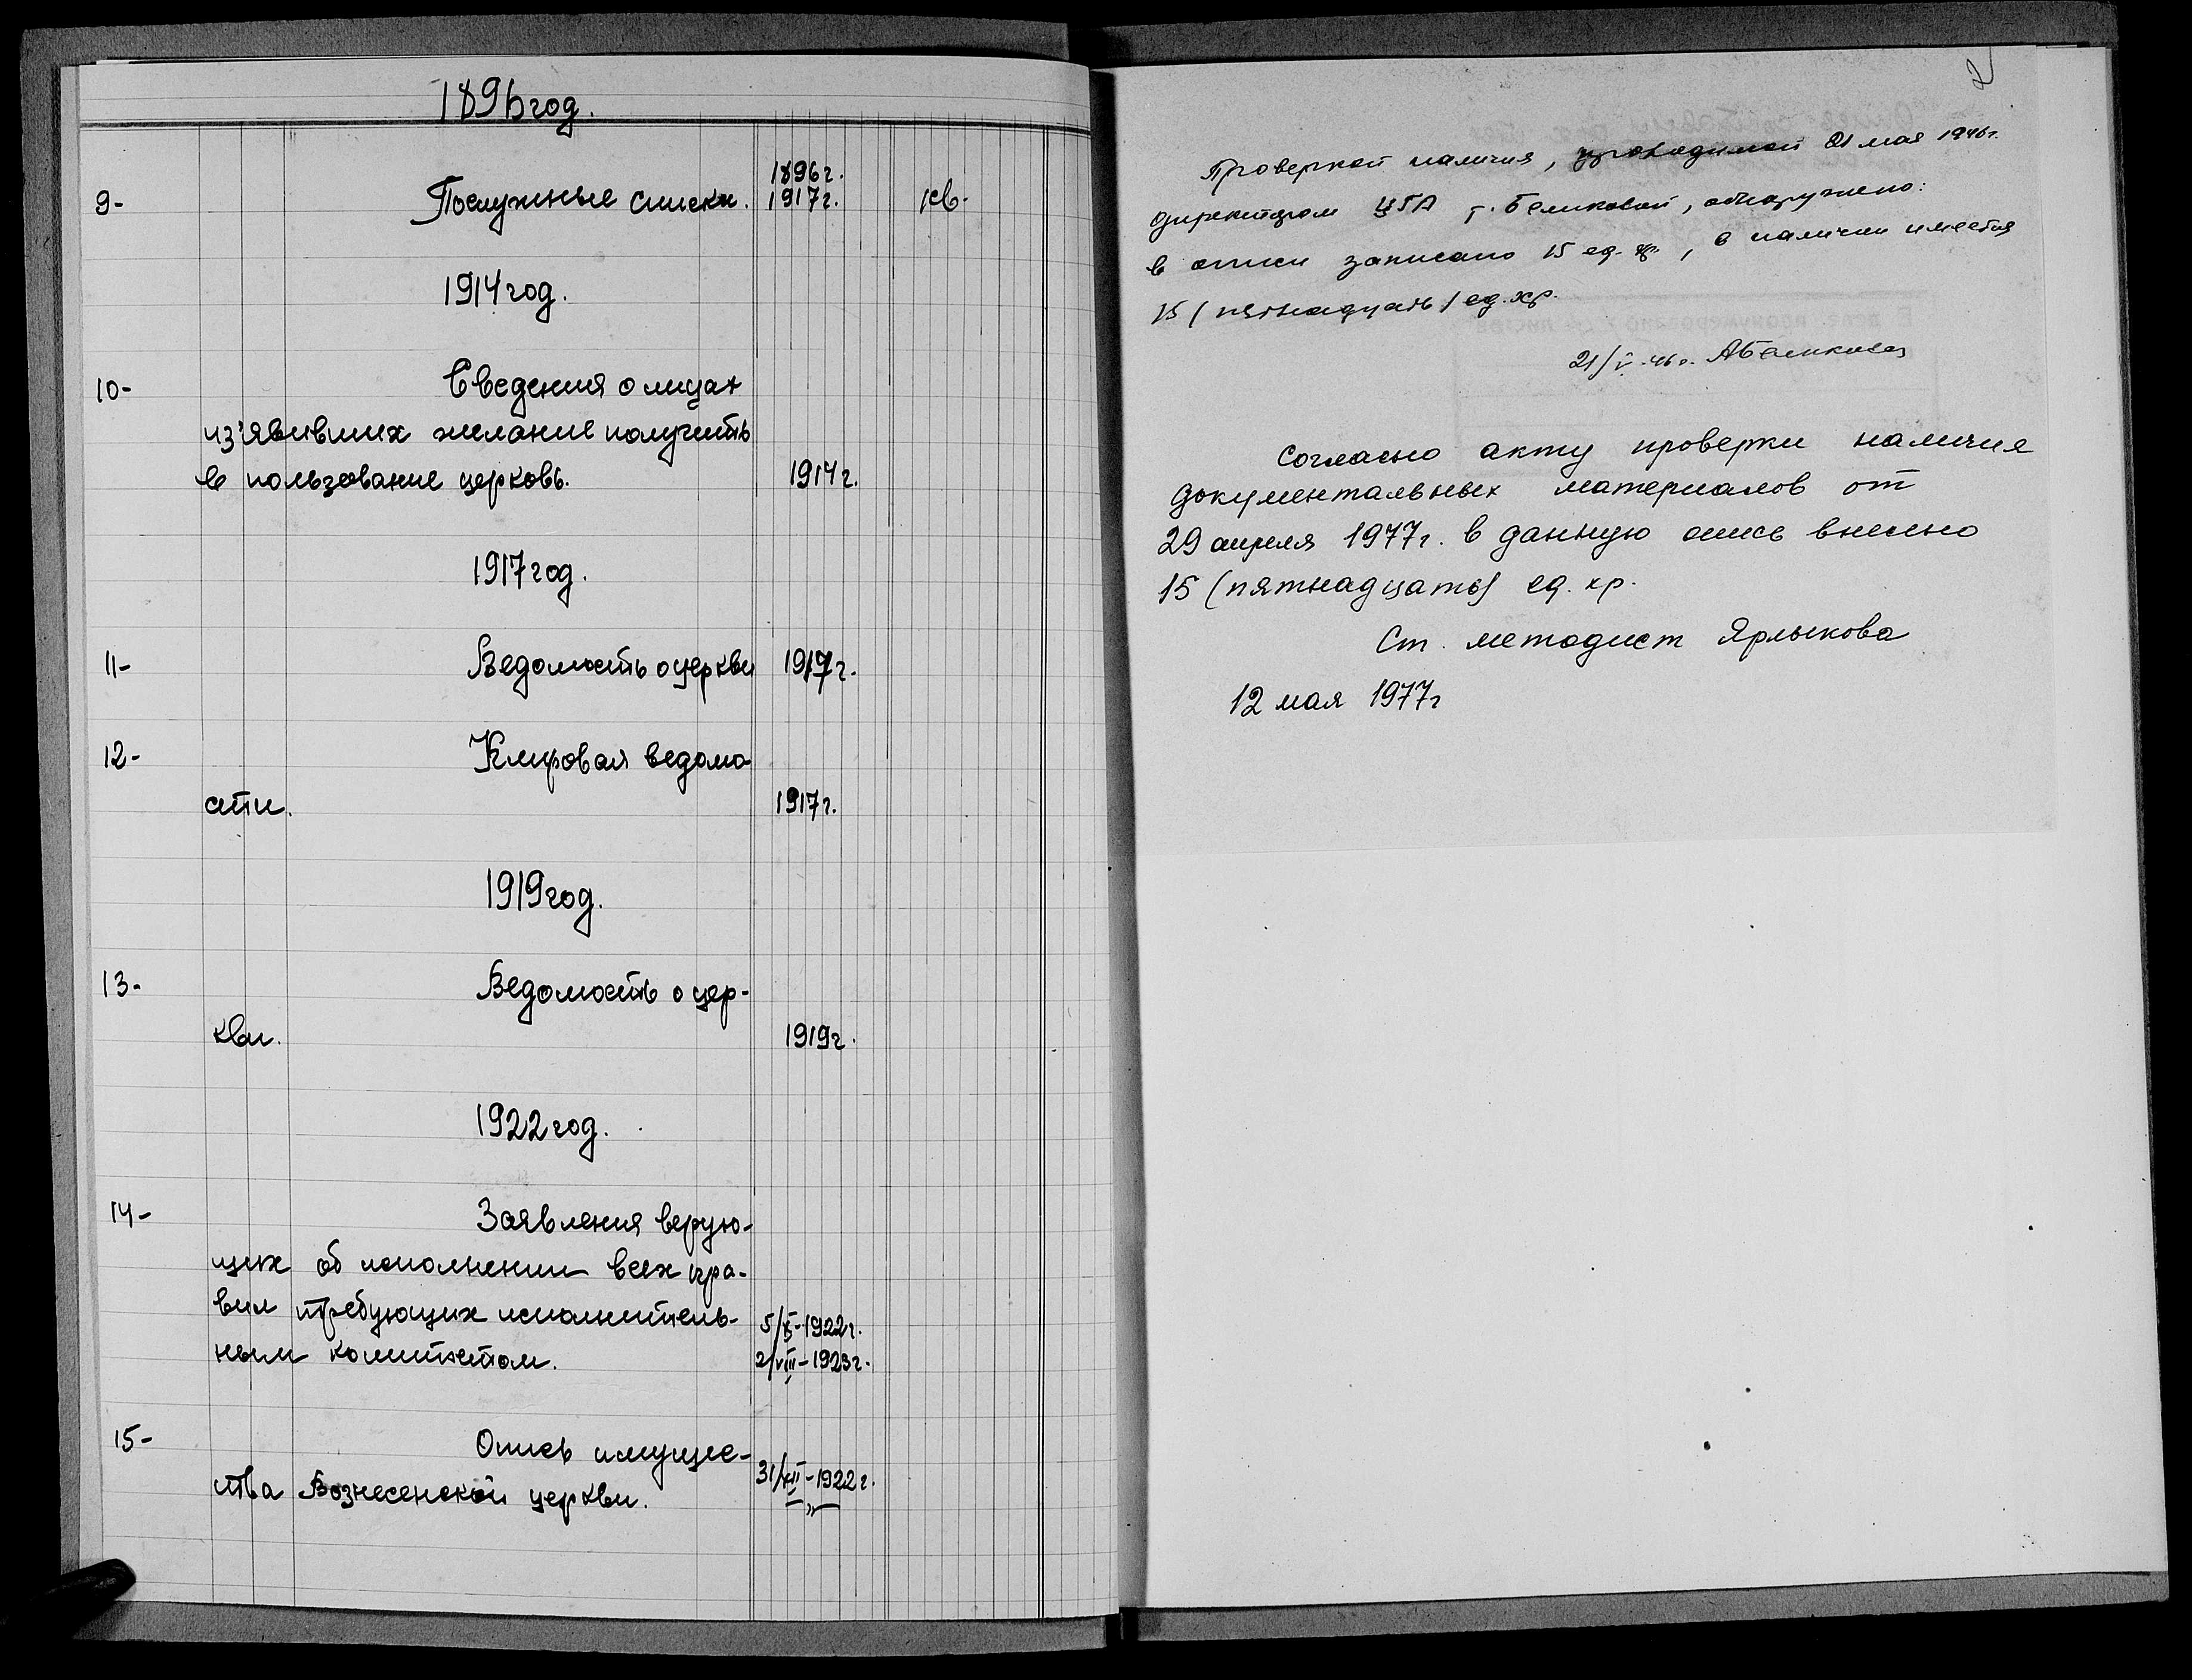 1896 год.
9- Послужные списки. 1896 г.
1917 г. кв.
1914 год.
10- Сведения о лицах
из'явивших желание получить
в пользование церковь. 1914 г.
1917 год.
11- Ведомость о церкви 1917 г.
12- Клировая ведомо
сти. 1917 г.
1919 год.
13- Ведомость о цер-
кви. 1919 г.
1922 год.
14- Заявления верую-
щих об исполнении всех пра-
вил требующих исполнитель- 5/X-1922 г.
ным комитетом. 2/VIII-1923 г.
15- Опись имуще-
ства Вознесенской церкви. 31/XII-1922 г.
2
Проверкой наличия, проводимой 21 мая 1946 г.
директором ЦГА т. Беликовой, обнаружено:
в описи записано 15 ед. хр., в наличии имеется
15 (пятнадцать) ед. хр.
21/V-46 г. АБеликова
Согласно акту проверки наличия
документальных материалов от
29 апреля 1977 г. в данную опись внесено
15 (пятнадцать) ед. хр.
Ст. методист Ярлыкова
12 мая 1977 г